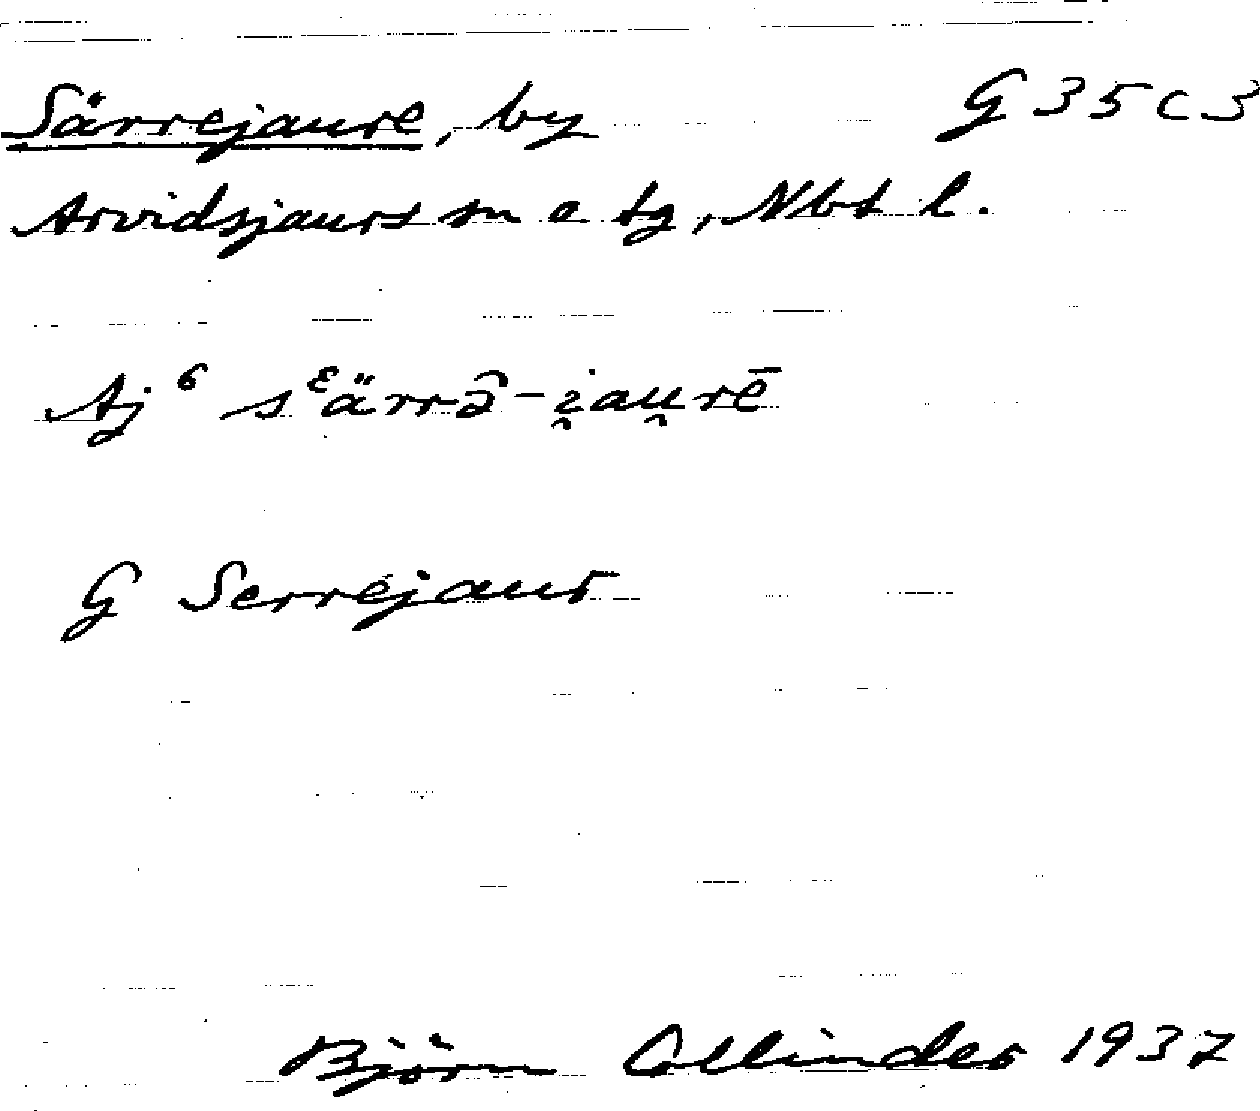 Särrejaure, by G 35 C 3
Arvidsjaurs sn o tg, Nbt l.
Aj⁶ sᵋärrə̑-i̯au̯rē
G Serrejaur
Björn Collinder 1937